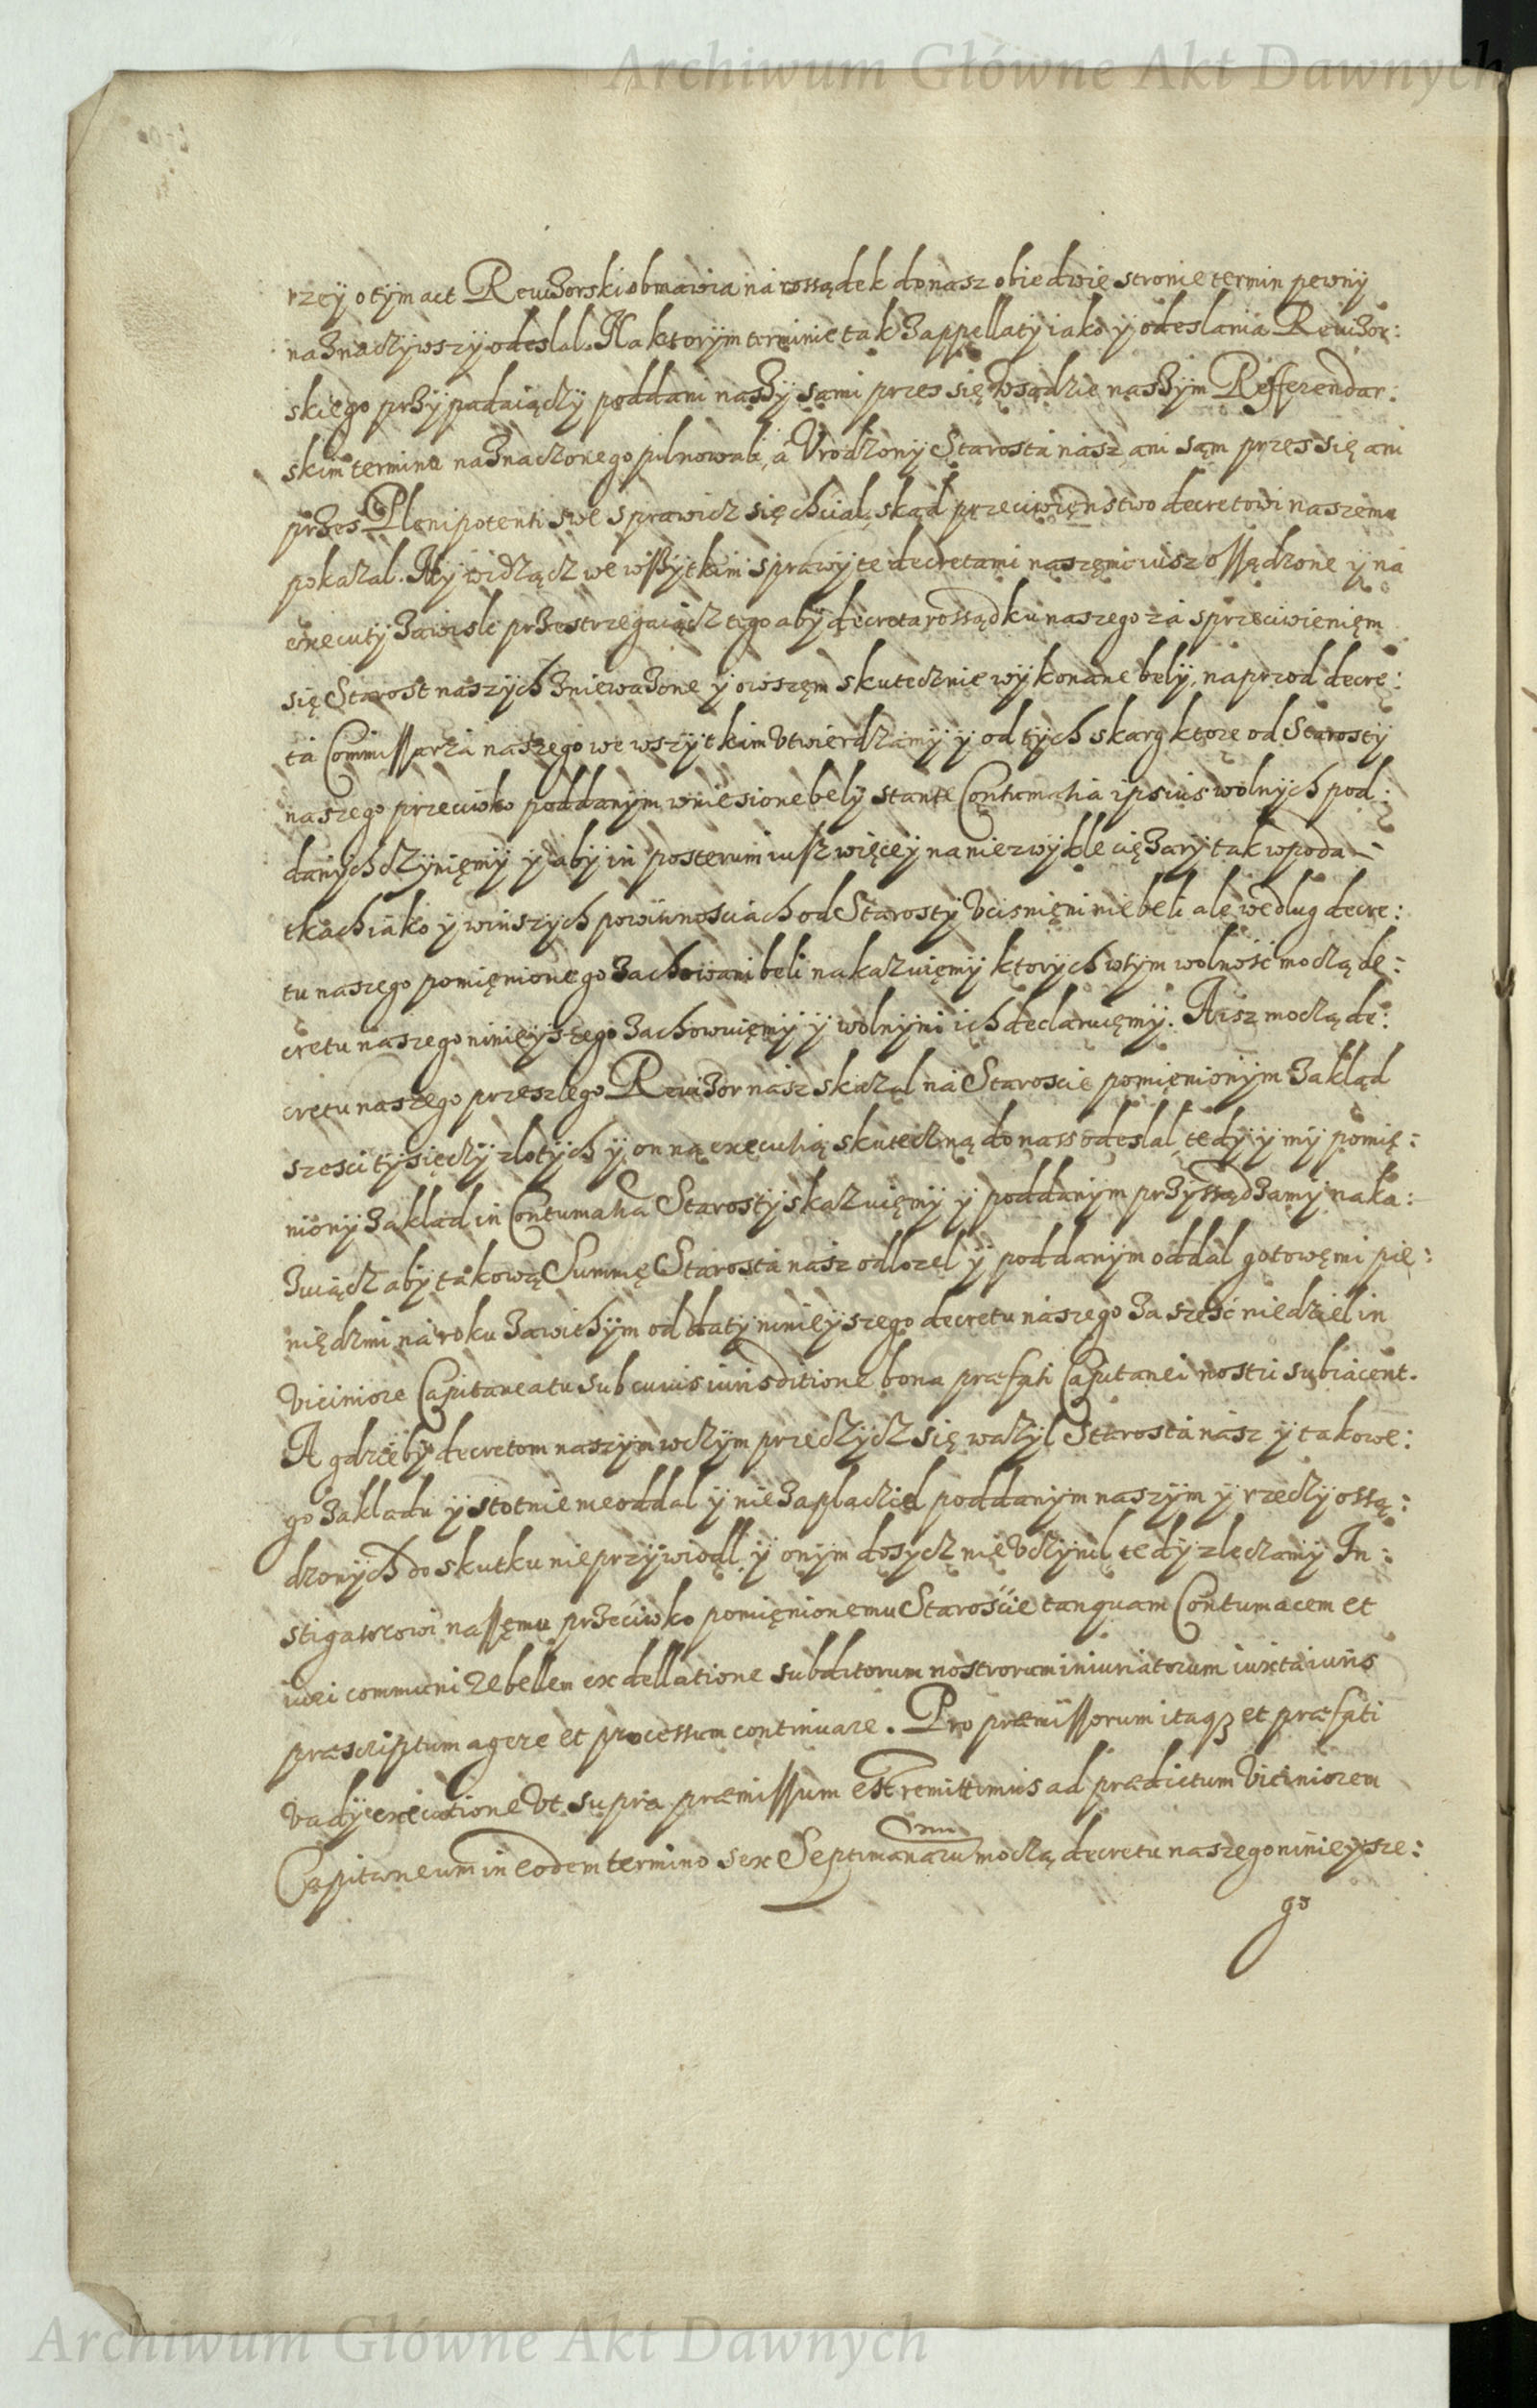 Archiwum Główne Akt Dawnych
rzey o tym act Rewizorski obmawia na rossądek do nasz obiedwie stronie termin pewny
naznaczywszy odeslal. Na ktorym terminie tak z appellaty iako y odeslania Rewizor:
skiego przypadaiączy poddani naszy sami przes się w sądzie naszym Refferendar:
skim terminu naznaczonego pilnowali, a Urodzony Starosta nasz ani sąm przes się ani
przes Plenipotenti swe sprawicz się chcial, skąd przeciwięnstwo decretowi naszemu
pokazal. My widzącz we wszytkim sprawy te decretami naszęmi iusz ossądzone y na
executy zawisle przestrzegaiącz tego aby decreta rossądku naszego za sprzeciwienięm
się Starost naszych zniewazone y owszęm skutecznie wykonane bely, naprzod decre:
ta Commissarza naszego we wszytkim utwierdzamy y od tych skarg ktore od Starosty
naszego przeciwko poddanym wniesione bely stante Contumatia ipsius wolnych pod:
danych czynięmy y aby in posterum iusz więcey na niezwykle ciężary tak w poda=
tkach iako y w inszych powinnosciach od Starosty ucisnięni nie beli ale według decre:
tu naszego pomięnionego zachowani beli nakazuięmy ktorych w tym wolność moczą de:
cretu naszego ninieyszego zachowuięmy y wolnymi ich declaruięmy. A isz moczą de:
cretu naszego przeszlego Rewizor nasz skazal na Staroscie pomięnionym zakląd
szesci tysięczy zlotych y on ną executią skuteczną do nass odeslal, tedy y my pomię:
niony zaklad in Contumatia Starosty skazuięmy y poddanym przyssądzamy naka:
zuiącz aby takową Summę Starosta nasz odlozel y poddanym oddal gotowęmi pie:
niędzmi na roku zawitym od daty ninieyszego decretu naszego za szesć niedziel in
viciniore Capitaneatu sub cuius iurisditione bona præfati Capitanei nostri subiacent.
A gdzieby decretom naszym w czym przeczycz się wazyl Starosta nasz y takowe:
go zakladu ystotnie nie oddal y nie zaplacziel poddanym naszym y rzeczy ossą:
dzonych do skutku nie przywiodl y onym dosycz nie uczynil tedy zleczamy In:
stigatorowi nassęmu przeciwko pomięnionemu Starosćie tanquam Contumacem et
iuri communi rebellem ex dellatione subditorum nostrorum iniuriatorum iuxta iuris
præscriptum agere et processum continuare. Pro præmissorum itaqꝫ et præfati
vadÿ executione Vt supra præmissum est remittimus ad prædictum Viciniorem
Capitaneum in eodem termino sex Septimanarum moczą decretu naszego ninieysze:
go
Archiwum Główne Akt Dawnych